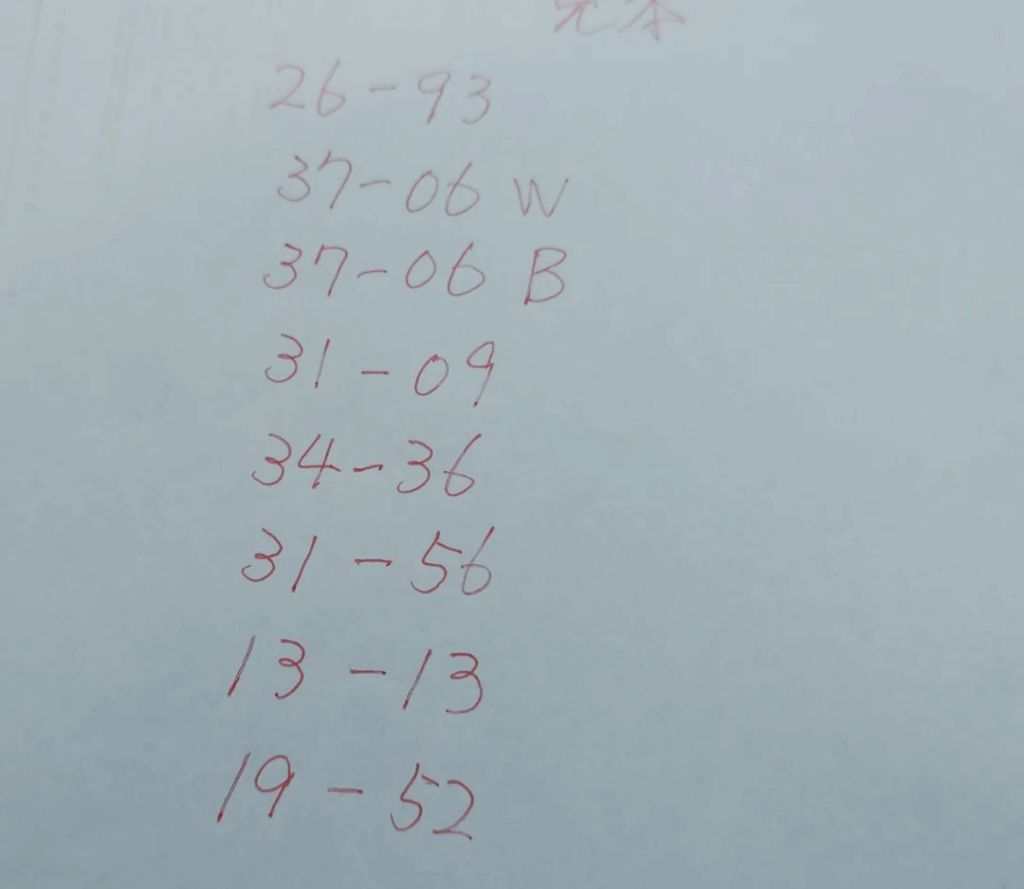 26-93
37-06 W
37-06 B
31-09
34-36
31-56
13-13
19-52